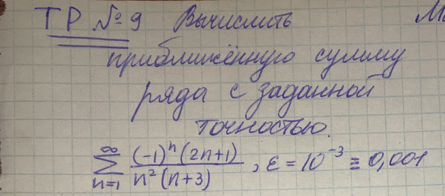 ТР №9 Вычислить М
приближённую сумму
ряда с заданной
точностью.
∞
∑ (-1)ⁿ(2n+1) / n²(n+3) , ε = 10⁻³ ≡ 0,001
n=1